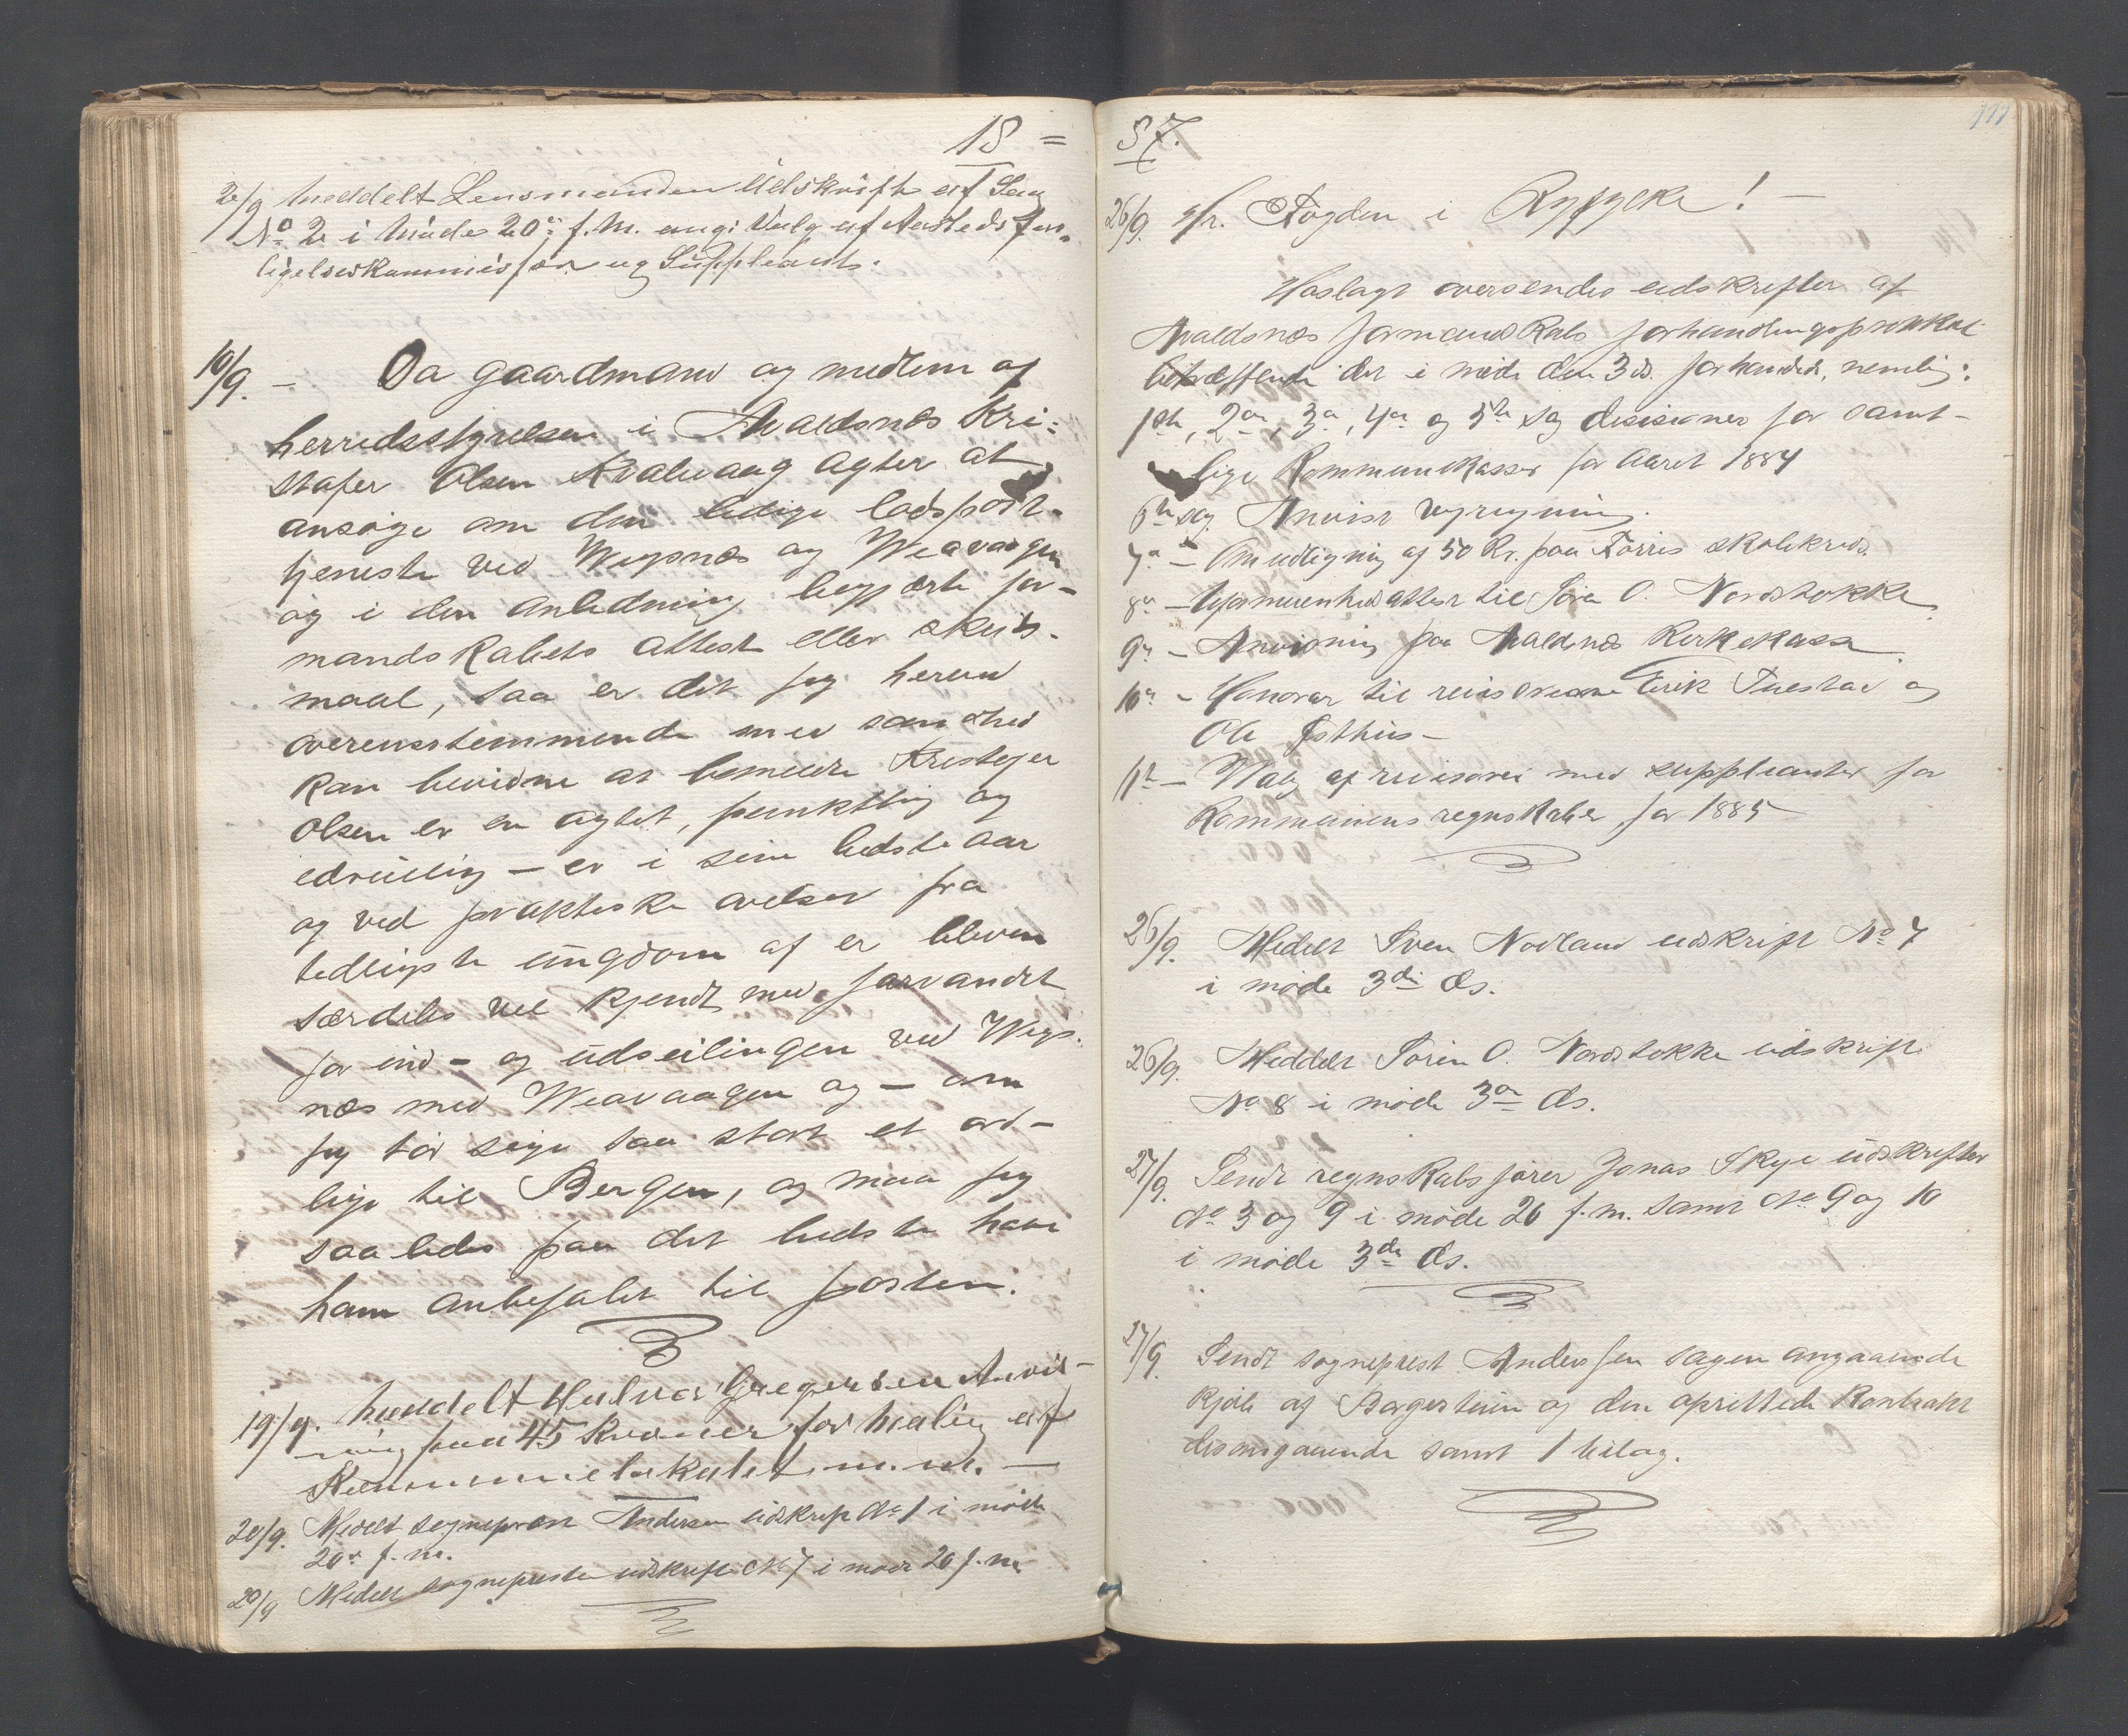 18 =
2/9 Meddelt Lensmanden Udskrift af Sag
No 2 i Møde 20de f.M. ang: Valg af Aasteds for-
ligelseskommissær og Suppleants.
10/9. – Da gaardmand og medlem af
herredsstyrelsen i Avaldsnes Kri-
stofer Olsen Kvalevaag agter at
ansøge om den ledige lodspost-
tjeneste ved Wigsnæs og Weavaagen
og i den anledning begjært for-
mandskabets attest eller skuds-
maal, saa er det jeg herved
overensstemmende med sandhed
kan bevidne at bemeldte Kristofer
Olsen er en agtet, punktlig og
edruelig – er i sine bedste aar
og ved praktiske øvelser fra
tidligste ungdom af er bleven
særdeles vel kjendt med farvandet
for ind- og udseilingen ved Wigs-
næs med Weavaagen og – om
jeg tør sige saa stort et ord –
lige til Bergen, og maa jeg
saaledes paa det bedste have
ham anbefalet til posten.
19/9. Meddelt Halvor Gregersen Anvis-
ning paa 45 Kroner for Maling af
Kommunelokalet m.m. –
20/9. Medelt sogneprest Andersen udskrift No 1 i møde
20de f.m.
20/9 Medelt sognepresten udskrift No 7 i møde 20 f.m.
87.
177
26/9. Hr. Fogden i Ryfylke! –
Hoslagt oversendes udskrifter af
Avaldsnes formandskabs forhandlingsprotokol
betræffende det i møde den 3 ds. forhandlede, nemlig:
1ste, 2den, 3de, 4de og 5te sag desisioner for samt-
lige Kommunekasser for aaret 1884
6te sag Anvist
7de – Om udligning af 50 Kr. paa Førres skolekreds
8de – til Søren O. Nordstokke
9de – Anvisning paa Avaldsnes Kirkekasse
10de – Honorar til revisorerne Erik Tuestad og
Ole Østhus –
11te – Valg af revisorer med suppleanter for
Kommunens regnskaber for 1885 –
26/9. Medelt Sven Nodland udskrift No 7
i møde 3de ds.
26/9. Meddelt Søren O. Nordstokke udskrift
No 8 i møde 3de ds.
27/9. Sendt regnskabsfører Jonas Skeie udskrifter
No 3 og 9 i møde 20 f.m. samt No 9 og 10
i møde 3de ds.
27/9 Sendt sogneprest Andersen sagen angaaende
kjøb af og den oprettede Kontrakt
desangaaende samt 1 bilag.